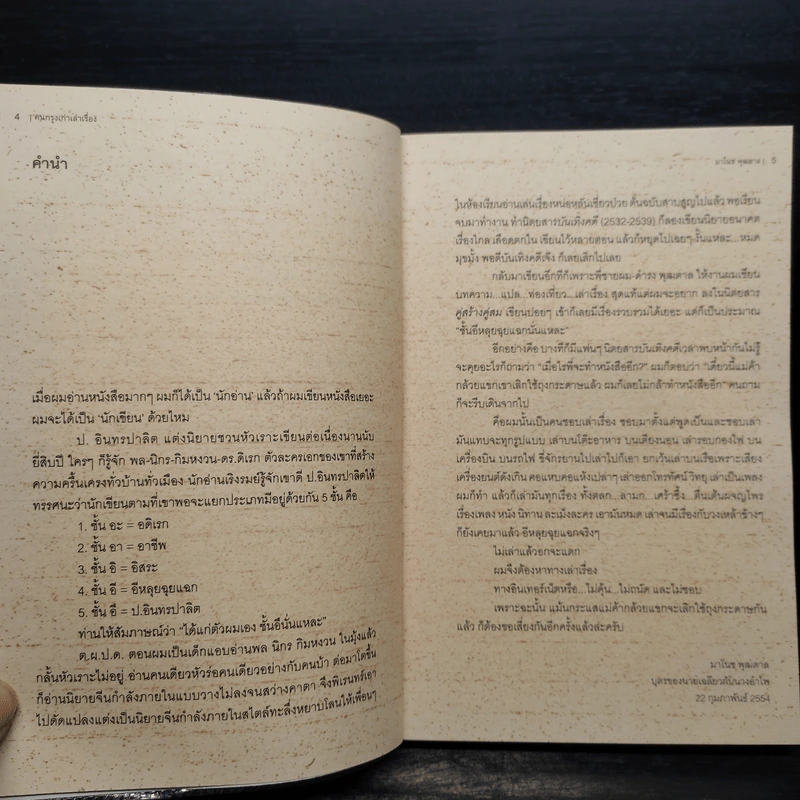 4 | คนกรุงเก่าเล่าเรื่อง
คำนำ
เมื่อผมอ่านหนังสือมากๆ ผมก็ได้เป็น 'นักอ่าน' แล้วถ้าผมเขียนหนังสือเยอะ
ผมจะได้เป็น 'นักเขียน' ด้วยไหม
ป. อินทรปาลิต แต่งนิยายชวนหัวเราะเขียนต่อเนื่องนานนับ
ยี่สิบปี ใครๆ ก็รู้จัก พล-นิกร-กิมหงวน-ดร.ดิเรก ตัวละครเอกของเขาที่สร้าง
ความครื้นเครงทั่วบ้านทั่วเมือง นักอ่านเริงรมย์รู้จักเขาดี ป.อินทรปาลิตให้
ทรรศนะว่านักเขียนตามที่เขาพอจะแยกประเภทมีอยู่ด้วยกัน 5 ชั้น คือ
1. ชั้น อะ = อดิเรก
2. ชั้น อา = อาชีพ
3. ชั้น อิ = อิสระ
4. ชั้น อี = อีหลุยฉุยแฉก
5. ชั้น อื = ป.อินทรปาลิต
ท่านให้สัมภาษณ์ว่า "ได้แก่ตัวผมเอง ชั้นอื่นั่นแหละ"
ต.ผ.ป.ด. ตอนผมเป็นเด็กแอบอ่านพล นิกร กิมหงวน ในมุ้งแล้ว
กลั้นหัวเราะไม่อยู่ อ่านคนเดียวหัวร่อคนเดียวอย่างกับคนบ้า ต่อมาโตขึ้น
ก็อ่านนิยายจีนกำลังภายในแบบวางไม่ลงจนสว่างคาตา จึงพิเรนทร์เอา
ไปดัดแปลงแต่งเป็นนิยายจีนกำลังภายในสไตล์ทะลึ่งหยาบโลนให้เพื่อนๆ
มาโนช พุฒตาล | 5
ในห้องเรียนอ่านเล่นเรื่องหน่อหลันเชี่ยวป่วย ต้นฉบับสาบสูญไปแล้ว พอเรียน
จบมาทำงาน ทำนิตยสารบันเทิงคดี (2532-2539) ก็ลองเขียนนิยายอนาคต
เรื่องไกล เลือดตกใน เขียนไว้หลายตอน แล้วก็หยุดไปเฉยๆ งั้นแหละ...หมด
มุขมั้ง พอดีบันเทิงคดีเจ๊ง ก็เลยเลิกไปเลย
กลับมาเขียนอีกทีก็เพราะพี่ชายผม-ดำรง พุฒตาล ให้งานผมเขียน
บทความ...แปล...ท่องเที่ยว...เล่าเรื่อง สุดแท้แต่ผมจะอยาก ลงในนิตยสาร
คู่สร้างคู่สม เขียนบ่อยๆ เข้าก็เลยมีเรื่องรวบรวมได้เยอะ แต่ก็เป็นประมาณ
"ชั้นอีหลุยฉุยแฉกนั่นแหละ"
อีกอย่างคือ บางทีก็มีแฟนๆ นิตยสารบันเทิงคดีเวลาพบหน้ากันไม่รู้
จะคุยอะไรก็ถามว่า "เมื่อไรพี่จะทำหนังสืออีก?" ผมก็ตอบว่า "เดี๋ยวนี้แม่ค้า
กล้วยแขกเขาเลิกใช้ถุงกระดาษแล้ว ผมก็เลยไม่กล้าทำหนังสืออีก" คนถาม
ก็จะรีบเดินจากไป
คือผมนั้นเป็นคนชอบเล่าเรื่อง ชอบมาตั้งแต่พูดเป็นและชอบเล่า
มันแทบจะทุกรูปแบบ เล่าบนโต๊ะอาหาร บนเตียงนอน เล่ารอบกองไฟ บน
เครื่องบิน บนรถไฟ ขี่จักรยานไปเล่าไปก็เอา ยกเว้นเล่าบนเรือเพราะเสียง
เครื่องยนต์ดังเกิน คอแหบคอแห้งเปล่าๆ เล่าออกโทรทัศน์ วิทยุ เล่าเป็นเพลง
ผมก็ทำ แล้วก็เล่ามันทุกเรื่อง ทั้งตลก...ลามก...เศร้าซึ้ง...ตื่นเต้นผจญไพร
เรื่องเพลง หนัง นิทาน ละเม็งละคร เอามันหมด เล่าจนมีเรื่องกับวงเหล้าข้างๆ
ก็ยังเคยมาแล้ว อีหลุยฉุยแฉกจริงๆ
ไม่เล่าแล้วอกจะแตก
ผมจึงต้องหาทางเล่าเรื่อง
ทางอินเทอร์เน็ตหรือ...ไม่คุ้น...ไม่ถนัด และไม่ชอบ
เพราะฉะนั้น แม้นกระแสแม่ค้ากล้วยแขกจะเลิกใช้ถุงกระดาษกัน
แล้ว ก็ต้องขอเสี่ยงกันอีกครั้งแล้วล่ะครับ
มาโนช พุฒตาล
บุตรของนายเฉลียวกับนางอำไพ
22 กุมภาพันธ์ 2554